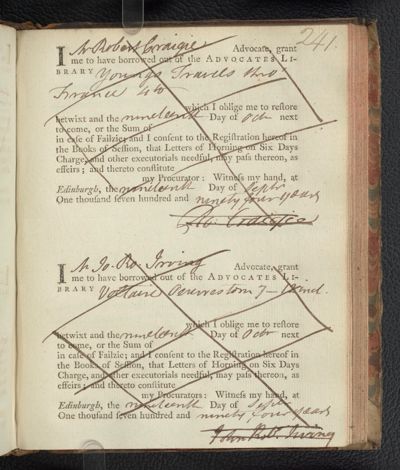 241.
I Mr Robert Craigie Advocate, grant
me to have borrowed out of the ADVOCATES LI-
BRARY Youngs Travels thro'
France 4to
which I oblige me to restore
betwixt and the nineteenth Day of Octr next
to come, or the Sum of
in case of Failzie; and I consent to the Registration hereof in
the Books of Session, that Letters of Horning on Six Days
Charge, and other executorials needful, may pass thereon, as
effeirs; and thereto constitute
my Procurator: Witness my hand, at
Edinburgh, the nineteenth Day of Septr
One thousand seven hundred and ninety four years
Ro. Craigie
I Mr Jo. Ro. Irving Advocate, grant
me to have borrowed out of the ADVOCATES LI-
BRARY Voltaire tom 7
which I oblige me to restore
betwixt and the nineteenth Day of Octr next
to come, or the Sum of
in case of Failzie; and I consent to the Registration hereof in
the Books of Session, that Letters of Horning on Six Days
Charge, and other executorials needful, may pass thereon, as
effeirs; and thereto constitute
my Procurator: Witness my hand, at
Edinburgh, the nineteenth Day of Septr
One thousand seven hundred and ninety four years
John Robt. Irving